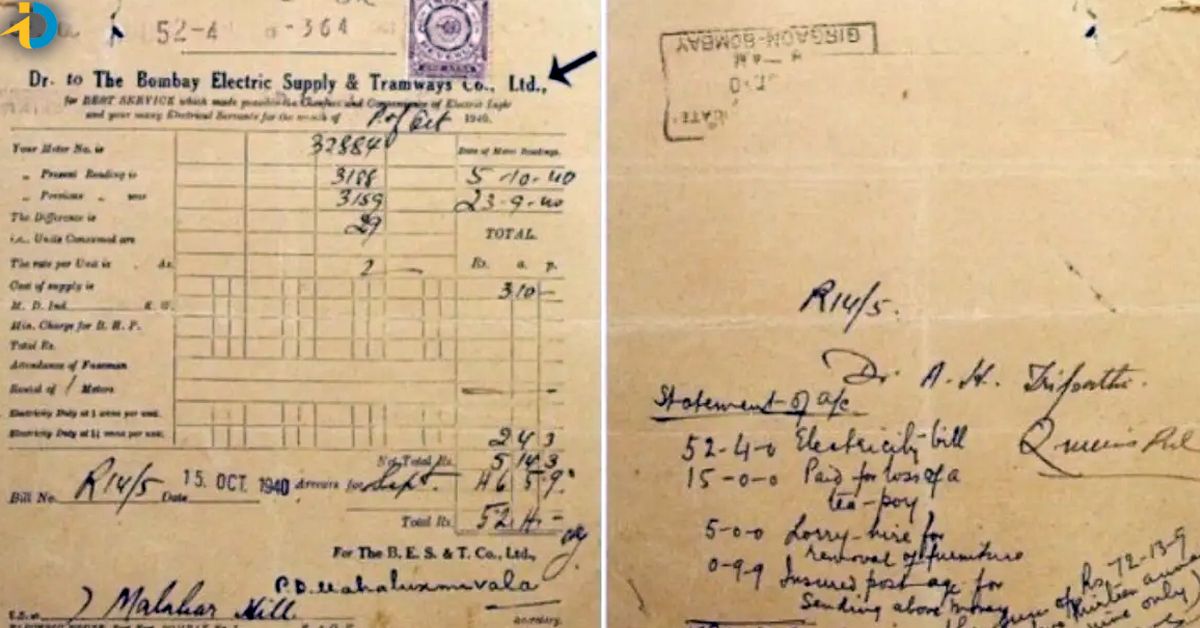 52-4
0-364
INDIA
REVENUE
Dr. to The Bombay Electric Supply & Tramways Co., Ltd.,
for BEST SERVICE which made possible the Comfort and Convenience of Electric Light
and your many Electrical Servants for the month of P. of Oct 1940.
Your Meter No. is 32884 Date of Meter Readings.
„ Present Reading is 3188 5-10-40
„ Previous „ was 3159 23-9-40
The Difference is 29
i.e., Units Consumed are TOTAL.
The rate per Unit is As. 2 — Rs. a. p.
Cost of supply is 3 10 -
M. D. Ind. K. W.
Min. Charge for B. H. P.
Total Rs.
Attendance of Fuseman
Rental of 1 Meters
Electricity Duty at 1 anna per unit.
Electricity Duty at 1½ annas per unit. 2 4 3
Net Total Rs. 5 14 3
Bill No. R14/5 Date 15. OCT. 1940 Arrears for Sept. 46 5 9
Total Rs. 52 4 -
For The B. E. S. & T. Co., Ltd.,
P.D. Mahaluxmivala
Malabar Hill
Secretary.
GIRGAON-BOMBAY
R14/5.
Dr. A. H. Tripathi.
Statement of a/c.
52-4-0 Electricity bill
15-0-0 Paid for loss of a
tea-poy
5-0-0 Lorry-hire for
removal of furniture
0-9-9 Insured postage for
sending above money
Rs-72-13-9
nine only)